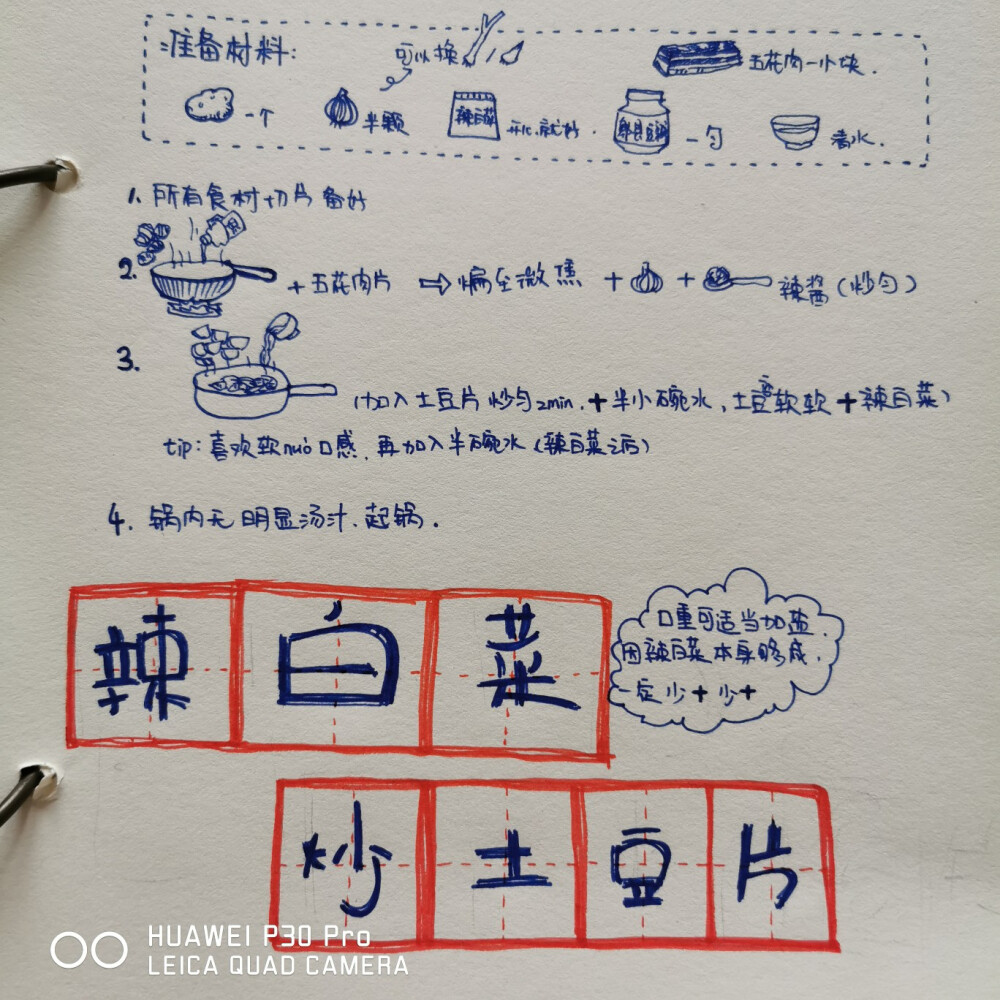 准备材料:
可以换
五花肉一小块.
一个
半颗
辣白菜
开心就好.
一勺
清水.
1. 所有食材切片备好
2.
+五花肉片 ⇨ 煸至微焦 + + 辣酱(炒匀)
3.
(加入土豆片炒匀2min.+半小碗水,土豆变软软+辣白菜)
tip:喜欢软nuò口感,再加入半碗水(辣白菜之后)
4. 锅内无明显汤汁、起锅.
辣白菜
口重可适当加盐.
因辣白菜本身够咸.
一定少+少+
炒土豆片
HUAWEI P30 Pro
LEICA QUAD CAMERA